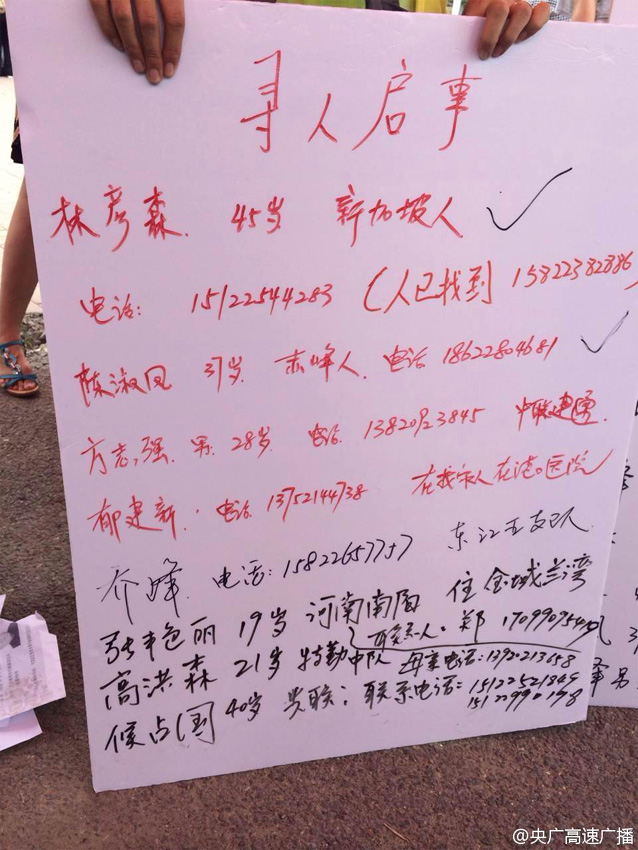 寻人启事
林彦森. 45岁 新加坡人
电话: 15122544283 (人已找到 15822382886
陈淑凤 37岁. 赤峰人. 电话 18622804681
方志强. 男. 28岁. 电话. 13820923845 中联建通
郁建新. 电话 13752144738 在找家人在港口医院
乔峰. 电话: 15822657757 东江五支队
张艳丽 19岁 河南南阳 住金域兰湾
联系人. 郑 1709909544
高洪森 21岁 特勤中队 母亲电话: 13920213658
候占国 40岁 失联; 联系电话: 15122521849
15122990198
@央广高速广播